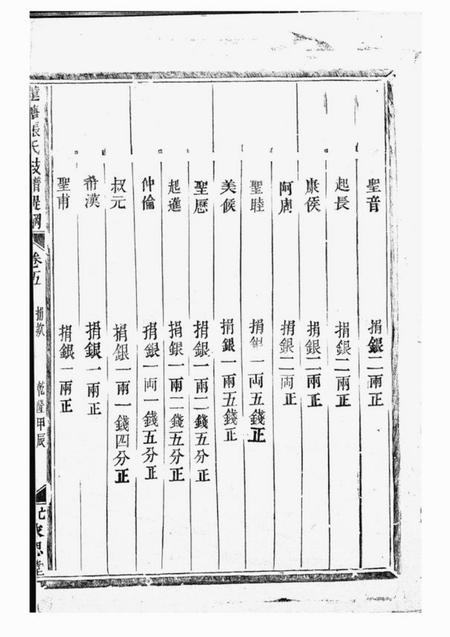 聖音 捐銀二兩正
起長 捐銀二兩正
康侯 捐銀二兩正
阿周 捐銀二両正
聖睦 捐銀一両五錢正
美候 捐銀一兩五錢正
聖歷 捐銀一兩二錢五分正
起進 捐銀一兩二錢五分正
仲倫 捐銀一両一錢五分正
叔元 捐銀一兩一錢四分正
希漢 捐銀一兩正
聖甫 捐銀一兩正
張氏歧譜提綱 卷五 捐款 乾隆甲辰